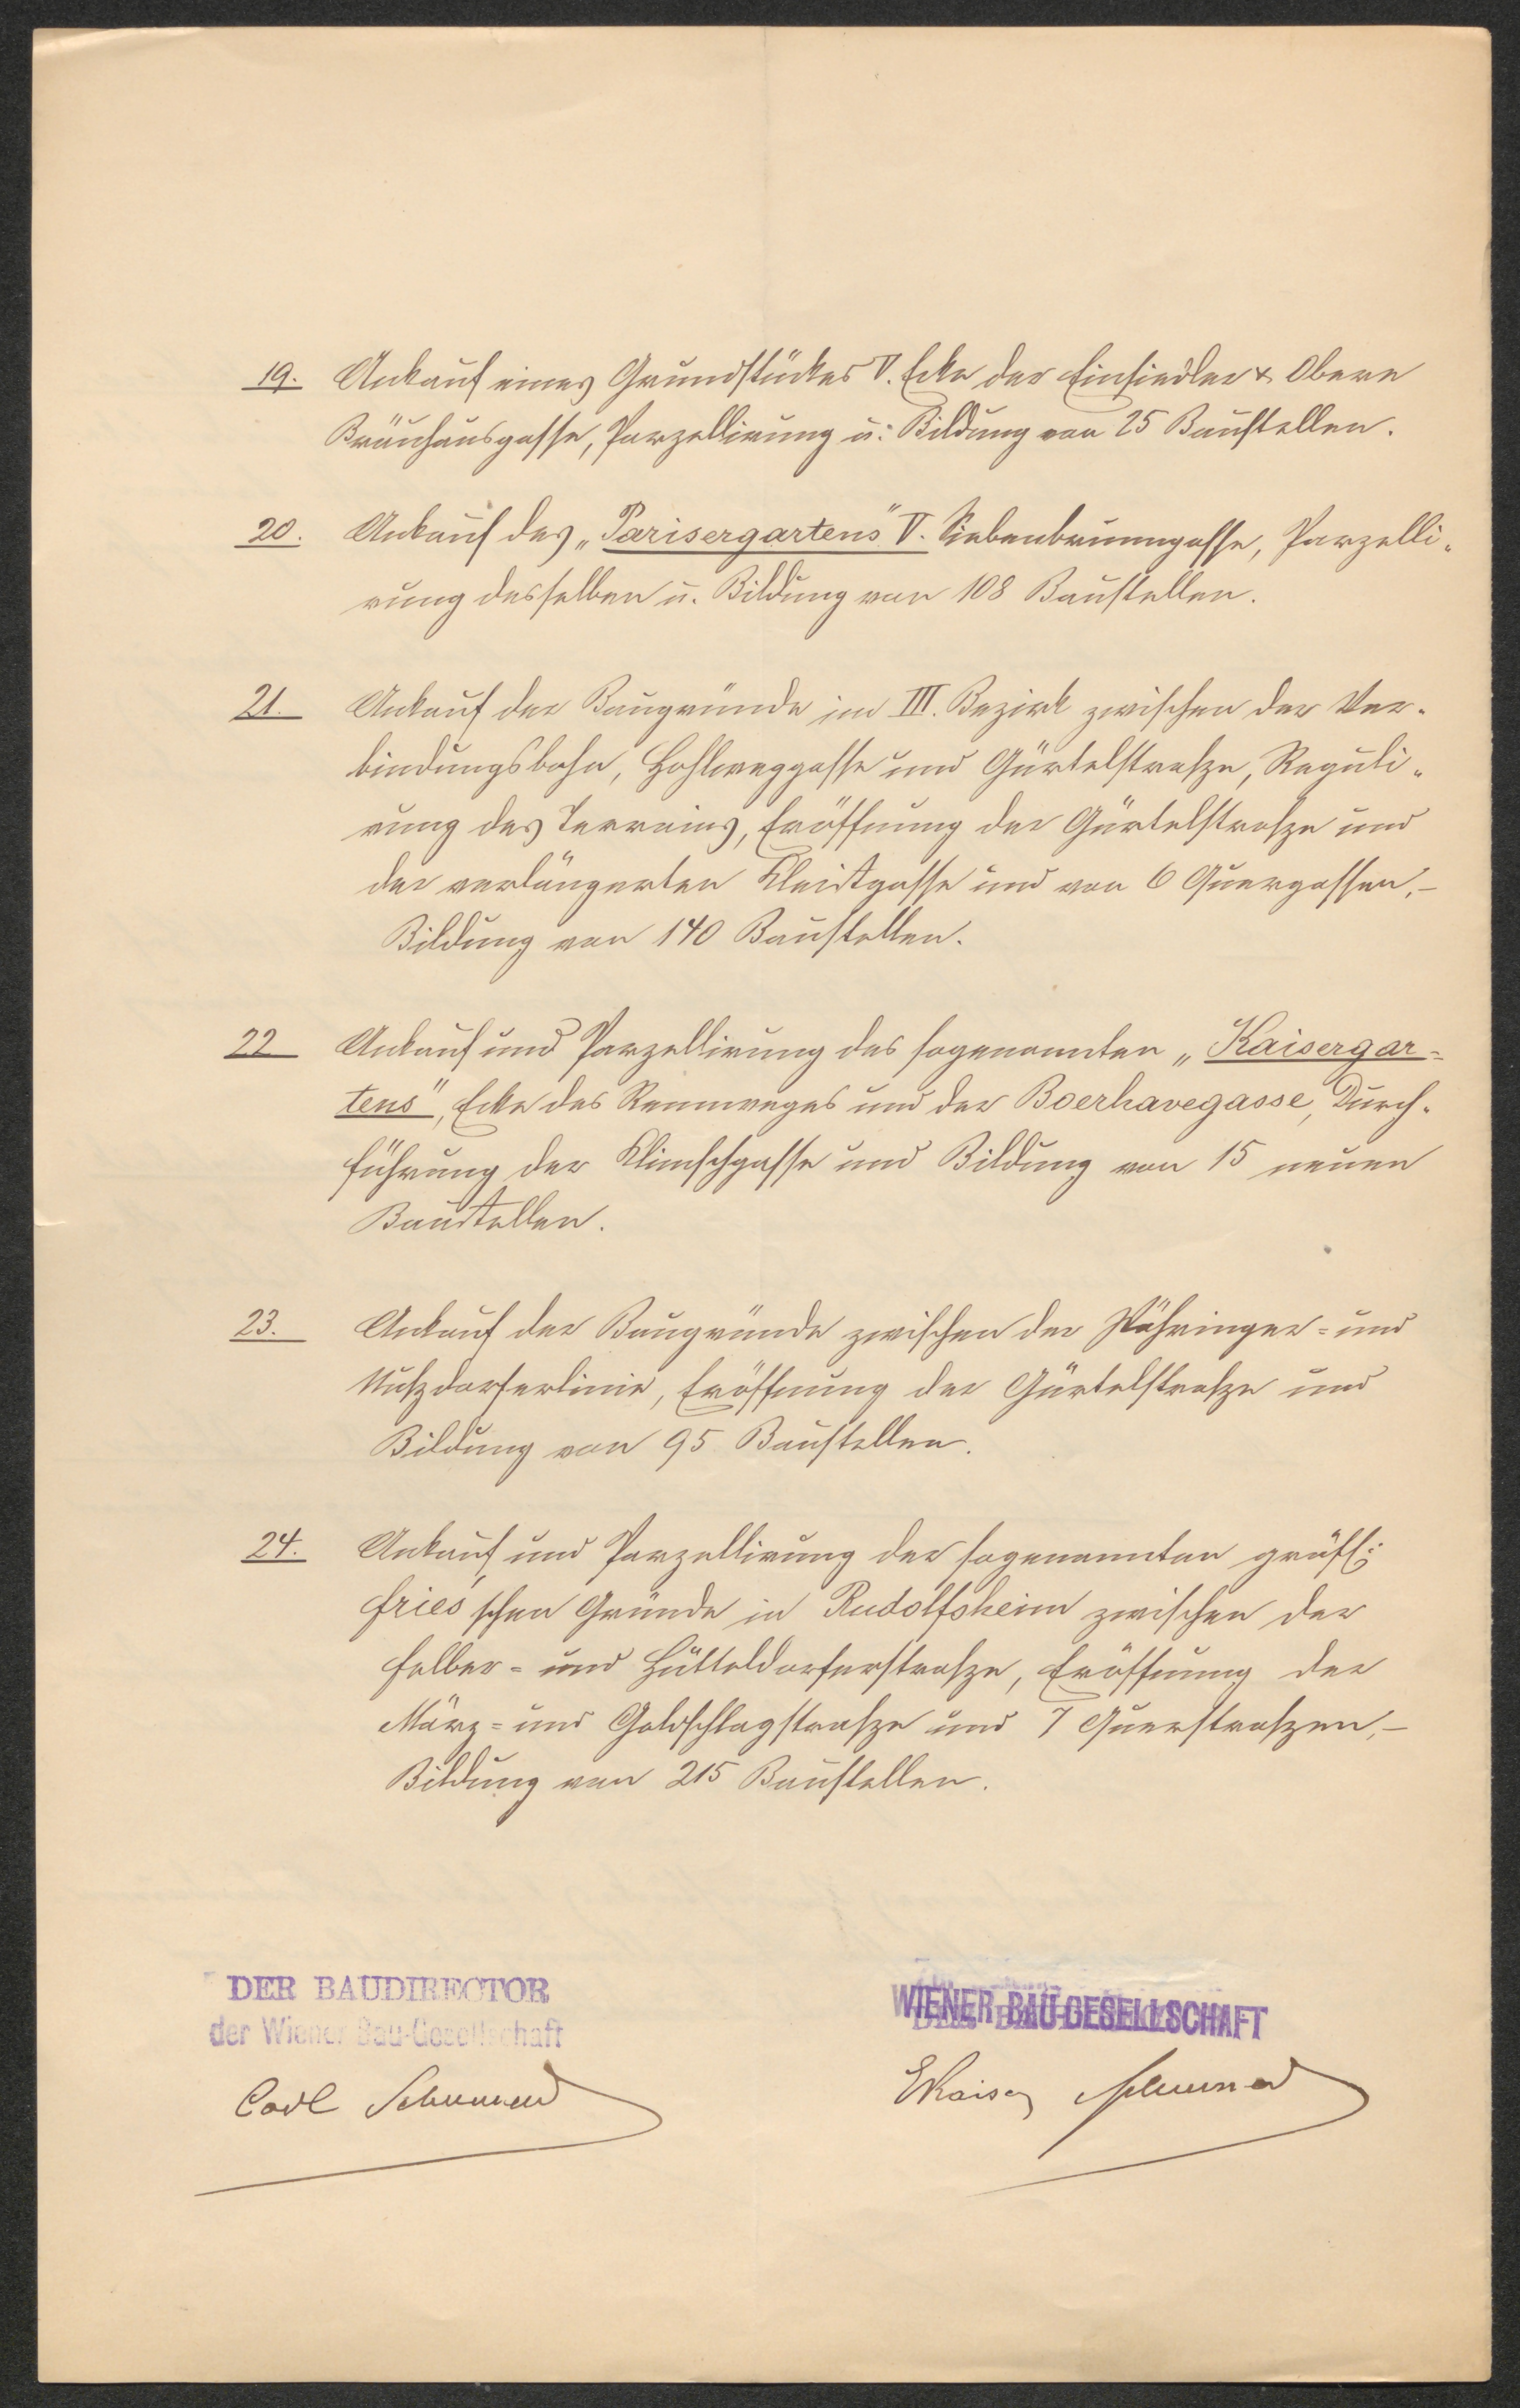 19. Ankauf eines Grundstückes V. Ecke der Einsiedler & Obere
Bräuhausgasse, Parzellirung u: Bildung von 25 Baustellen.
20. Ankauf des „Parisergartens" V. Siebenbrunngasse, Parzelli-
rung desselben u. Bildung von 108 Baustellen.
21. Ankauf der Baugründe im III. Bezirk zwischen der Ver-
bindungsbahn, Hohlweggasse und Gürtelstrasze, Reguli-
rung des Terrains, Eröffnung der Gürtelstrasze und
der verlängerten Kleistgasse und von 6 Quergassen,-
Bildung von 140 Baustellen.
22 Ankauf und Parzellirung des sogenannten „Kaisergar-
tens", Ecke des Rennweges und der Boerhavegasse, Durch-
führung der Klimschgasse und Bildung von 15 neuen
Baustellen.
23. Ankauf der Baugründe zwischen der Währinger- und
Nuszdorferlinie, Eröffnung der Gürtelstrasze und
Bildung von 95 Baustellen.
24. Ankauf und Parzellirung der sogenannten gräfl:
Fries'schen Gründe in Rudolfsheim zwischen der
Felber- und Hütteldorferstrasze, Eröffnung der
März- und Goldschlagstrasze und 7 Querstraszen,-
Bildung von 215 Baustellen.
DER BAUDIRECTOR
der Wiener Bau-Gesellschaft
Carl
WIENER BAU-GESELLSCHAFT
EKaiser